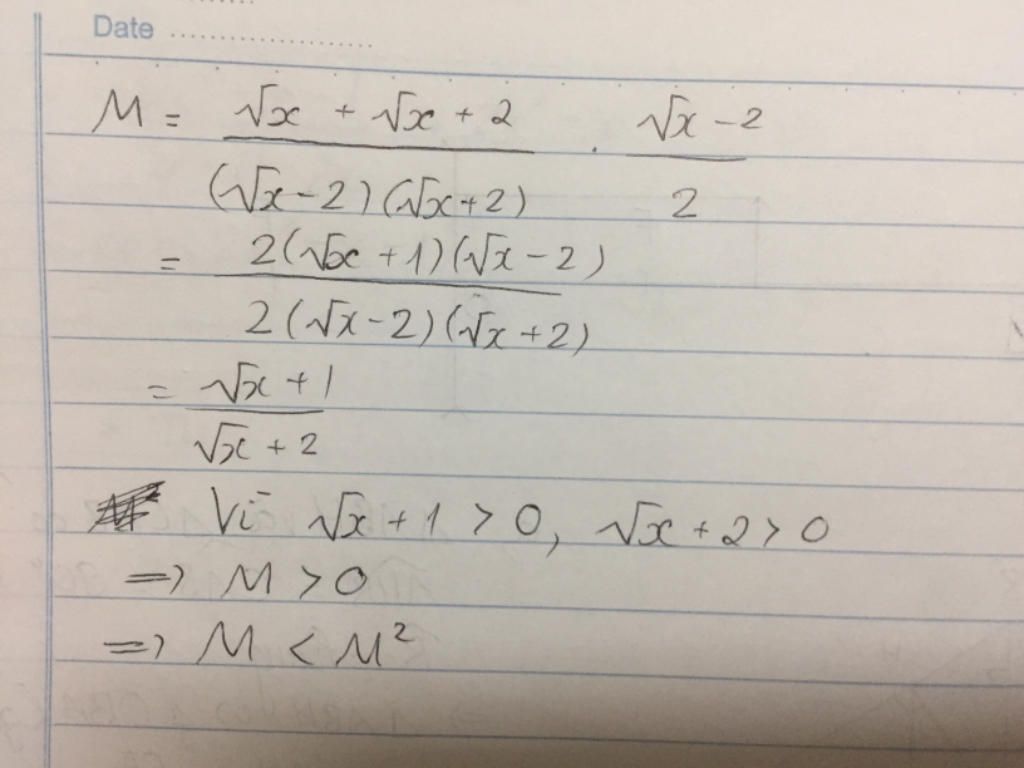 Date ....................
M = (√x + √x + 2)/((√x - 2)(√x + 2)) . (√x - 2)/2
= (2(√x + 1)(√x - 2))/(2(√x - 2)(√x + 2))
= (√x + 1)/(√x + 2)
Vì √x + 1 > 0, √x + 2 > 0
=> M > 0
=> M < M²